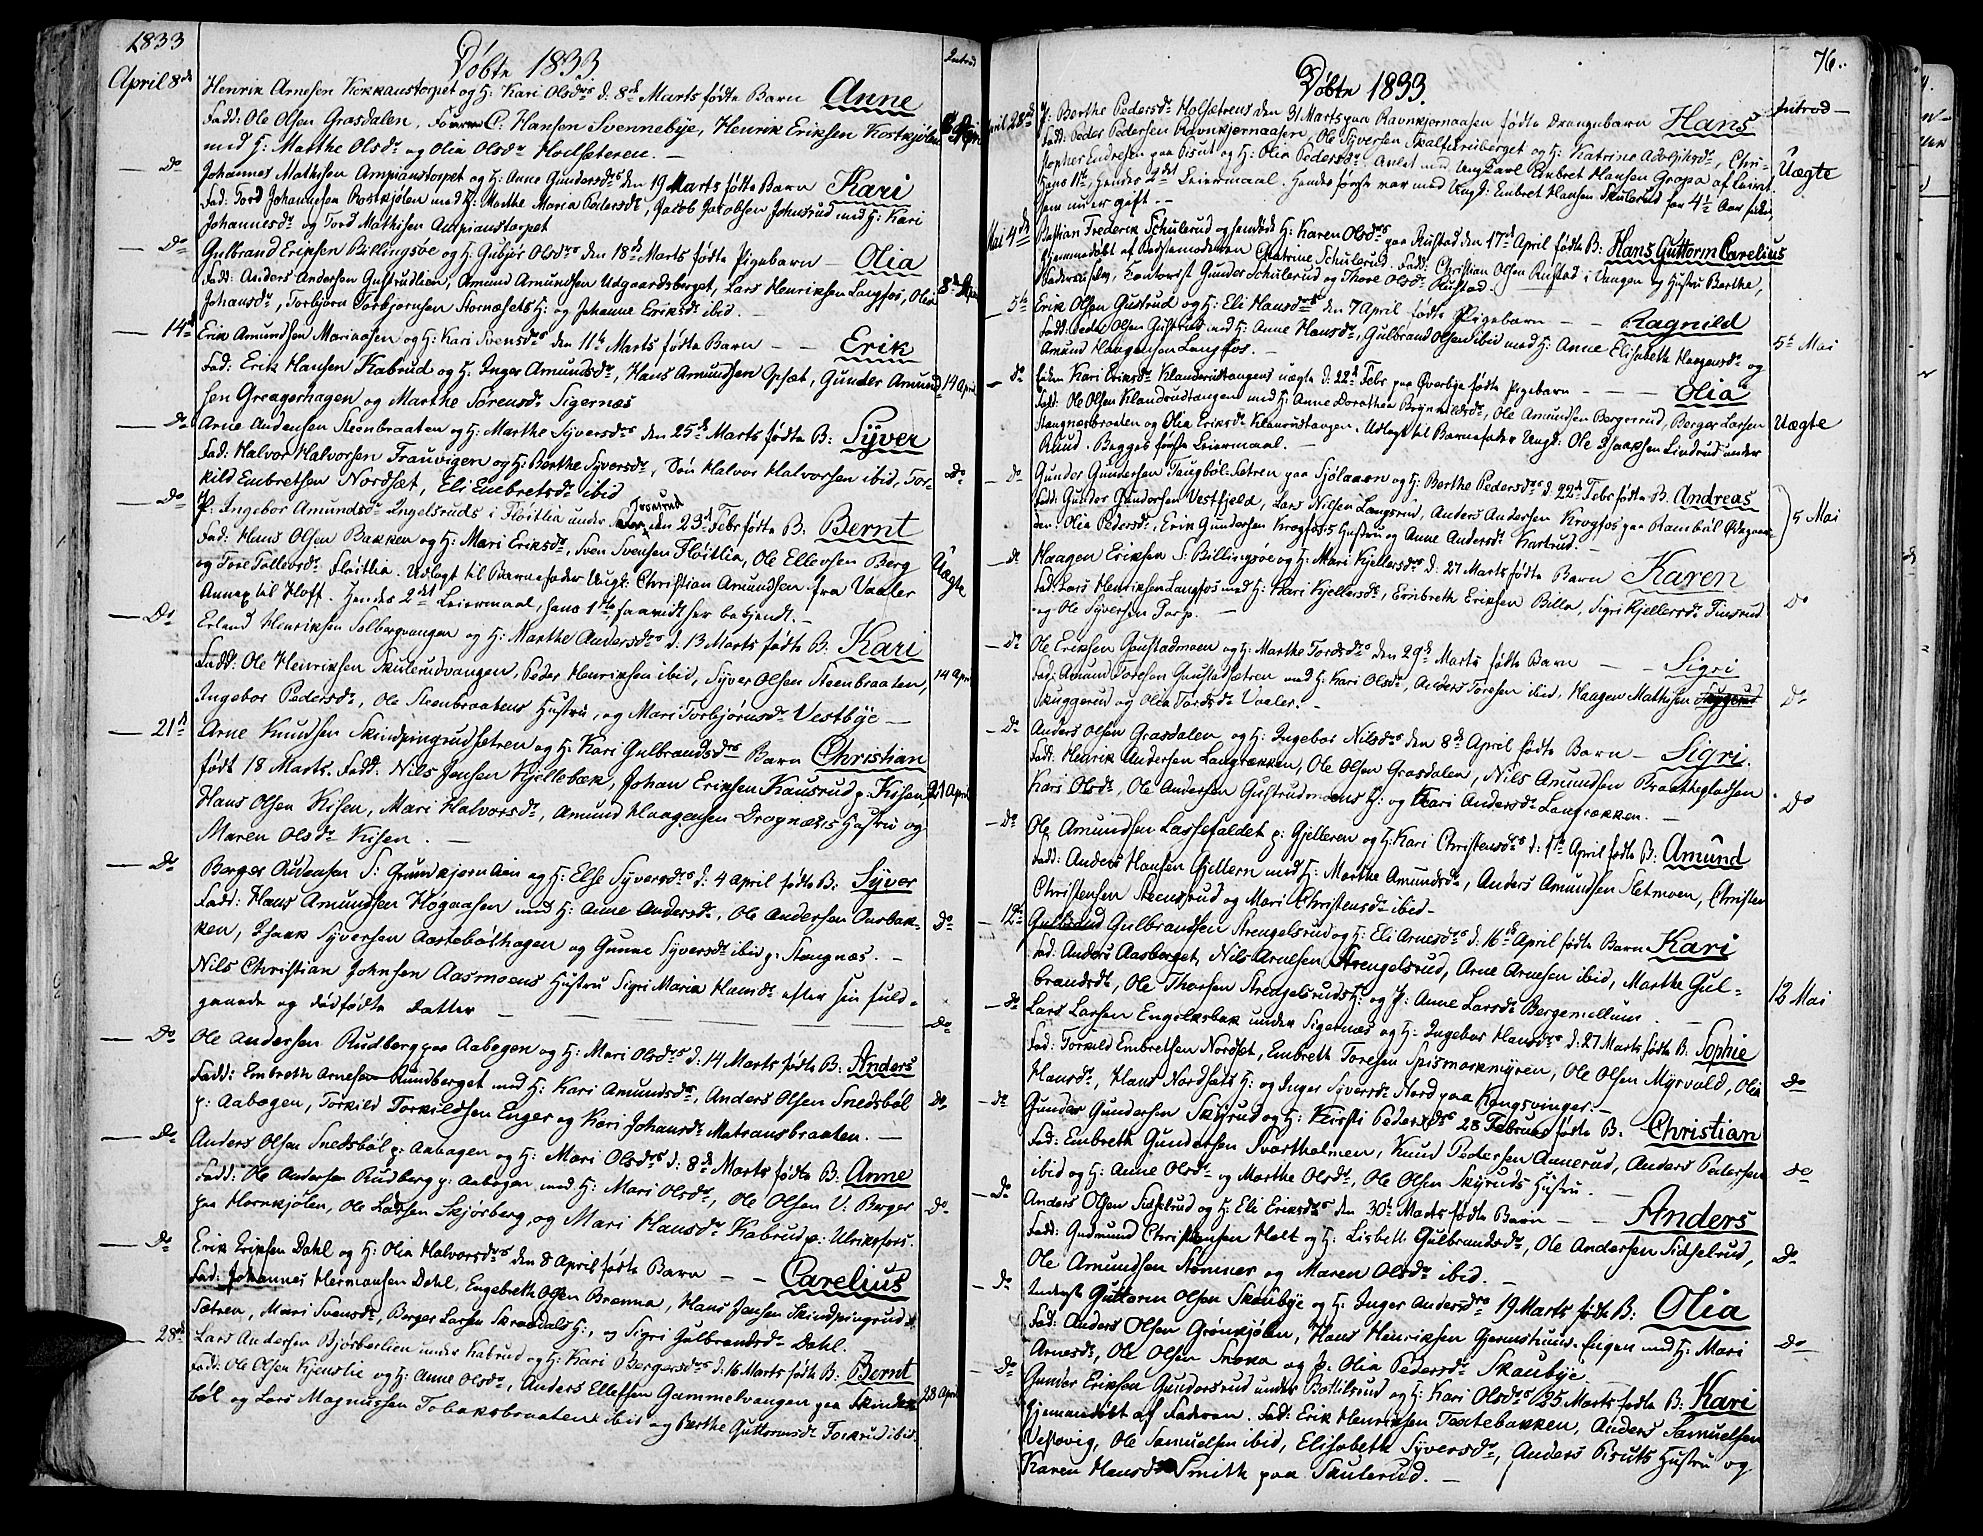 1833
Døbte 1833.
Introd
April 8de
Henrik Arnesen Kokkaustorpet og H: Kari Olsdr d. 8de Marts fødte Barn Anne
Fadd: Ole Olsen Grasdalen, C. Hansen Svennebye, Henrik Eriksen Kortkjølen
med H: Marthe Olsdr og Olia Olsdr Modseteren. —
— Do
Johannes Mathisen Ampianstorpet og H: Anne Gundersdr den 19 Marts fødte Barn Kari
Fad: Tord Johannesen Rotkjølen med H: Marthe Maria Pedersdr, Jacob Jacobsen Johnsrud med H: Kari
Johannesdr og Tord Mathisen Ampianstorpet
— Do
Gulbrand Eriksen Billingsøe og H: Gubjør Olsdr den 18de Marts fødte Pigebarn — Olia
Fadd: Anders Andersen Gustrudlien, Amund Amundsen Udgaardsberget, Lars Henriksen Langfos, Olia
Johansdr, Torbjørn Torbjørnsen Stornæsets H: og Johanne Eriksdr ibid. —
— 14de
Erik Amundsen Mariaasen og H: Kari Svensdr den 11te Marts fødte Barn — — Erik
Fad: Erik Hansen Kabrud og H. Inger Amundsdr, Hans Amundsen Opsæt, Gunder Amund-
14 April
sen Greagerhagen og Marthe Sørensdr Sigernæs
— Do
Arne Audensen Steenbraaten og H: Marthe Syversdr den 25de Marts fødte B: Syver
Fad: Halvor Halvorsen Frauvigen og H: Berthe Syversdr, Søn Halvor Halvorsen ibid, Tor-
Do
kild Embretsen Nordsæt, Eli Embretsdr ibid
— Do
P. Ingebor Amundsdr Ingelsruds i Fløitlia under den 23d Febr fødte B. Bernt
Fad: Hans Olsen Bakken og H: Mari Eriksdr, Sven Svensen Fløitlia, Ole Ellevsen Berg
og Tore Tollevsdr Fløitlia. Udlagt til Barnefader Ungk. Christian Amundsen fra Vaaler
Uægte
Annex til Hoff. Hendes 2det Leiermaal, hans 1te saavidt her bekjendt. —
— Do
Erland Henriksen Solbergvangen og H: Marthe Andersdr d. 13 Marts fødte B: Kari
Fadd: Ole Henriksen Skulerudvangen, Peder Henriksen ibid, Syver Olsen Steenbraaten,
14 Apr
Ingebor Pedersdr, Ole Steenbraatens Hustru, og Mari Torbjørnsdr Vestbye —
— 21de
Arne Knudsen Skindpingrudsetren og H: Kari Gulbrandsdr Barn Christian
født 18 Marts. Fadd: Nils Jensen Kjellebæk, Johan Eriksen Kausrud p: Kisen
21 April
Hans Olsen Kisen, Mari Halvorsdr, Amund Haagensen Drognæs's Hustru og
Maren Olsdr Kisen. —
— Do
Berger Audensen S: og H: Else Syversdr d: 4 April fødte B: Syver
Fadd: Hans Amundsen Høgaasen med H: Anne Andersdr, Ole Andersen Aasbak-
Do
ken, Isaak Syversen Aastebølhagen og Gunne Syversdr ibid p: Stangnæs. —
Nils Christian Johnsen Aasmoens Hustru Sigri Maria Hansdr efter sin fuld-
gaaede og dødfødte Datter — — — — Do
— Do
Ole Andersen Rudberg paa Aabogen og H: Mari Olsdr d: 14 Marts fødte B: Anders
Fadd: Embreth Arnesen Rundberget med H: Kari Amundsdr, Anders Olsen Snedsbøl
Do
p: Aabogen, Torkild Torkildsen Enger og Kari Johansdr Matransbraaten. —
— Do
Anders Olsen Snedsbøl p: Aabogen og H: Mari Olsdr d: 8de Marts fødte B: Anne
Fadd: Ole Andersen Rudberg p: Aabogen med H: Mari Olsdr, Ole Olsen V: Berger
Do
paa Hornkjølen, Ole Larsen Skjørberg, og Mari Hansdr Kabrud p: Ulriksfors.
— Do
Erik Eriksen Dahl og H: Olia Halvorsdr den 8 April fødte Barn — — Carelius
Fad: Johannes Hermansen Dahl, Engebreth Olsen Brænna, Hans Jensen Skindpingrud
Sætren, Mari Svensdr, Berger Larsen Skrændals H:, og Sigri Gulbrandsdr Dahl.
— 28de
Lars Andersen Bjørbærlien under Kabrud og H: Kari Bergersdr d: 16 Marts fødte B: Bernt
Fad: Ole Olsen Kjenslie og H: Anne Olsdr, Anders Ellefsen Gammelvangen paa Skindere
28 April
bøl og Lars Magnussen Tobaksbraaten ibid og Berthe Guttormsdr ibid.
76.
Døbte 1833.
Introd —
April 28de
P. Berthe Pedersdr Holsetrens den 31 Marts paa Ravnkjernaasen fødte Drengebarn Hans
Fadd: Peder Pedersen Ravnkjernaasen, Ole Syversen Skalfuriberget og H: Katrine Adolphsdr, Chri-
stopher Endresen paa Pisut og H: Olia Pedersdr. Anlet med Ungkarl Embret Hansen Gropa af
Uægte
Hans 1te, Hendes 2det Leiermaal. Hendes første var med Ungk: Embret Hansen Skulerud for 4½ Aar siden,
som nu er gift. —
Mai 4de
Bastian Frederik Schulerud og H: Karen Olsdr paa Rustad den 17de April fødte B: Hans Guttorm Carelius
Hjemmedøbt af Bedstemoderen Chatrine Schulerud. Fadd: Christian Olsen Rustad i Vangen og Hustru Berthe,
Kontorist Gunder Schulerud og Thore Olsdr Rustad.
— 5te
Erik Olsen Gustrud og H: Eli Hansdr den 7 April fødte Pigebarn — — Ragnild
Fadd: Peder Olsen Gustrud med H: Anne Hansdr, Gulbrand Olsen ibid med H: Anne Elisabeth Haagensdr og
5te Mai
Amund Haagensen Langfos. —
— Do
Kari Eriksdr Klanderudtangens uægte d: 22de Febr paa Øverbye fødte Pigebarn — — Olia
Fadd: Ole Olsen Klandrudtangen med H: Anne Dorothea Brynnildsdr, Ole Amundsen Bergerrud, Berger Larsen
Uægte
Stangnæsbraaten og Olia Eriksdr Klanrustangen. Udlagt til Barnefader Ungk: Ole Isaaksen Lindrud under
Ruud. Begges første Leiermaal. —
— Do
Gunder Gundersen Taugbøl-Sætren paa Sjølaaen og H: Berthe Pedersdr d: 22de Febr fødte B. Andreas
Fadd: Gunder Gundersen Vestfjeld, Lars Nilsen Langsrud, Anders Andersen Krogfos paa Rambøl
5 Mai
den. Olia Pedersdr, Erik Gundersen Krogfos's Hustru og Anne Andersdr Kastrud. —
— Do
Haagen Eriksen S: Billingsøe og H: Mari Kjellersdr d: 27 Marts fødte Barn Karen
Fad: Lars Henriksen Langfos med H: Kari Kjellersdr, Embreth Eriksen Billa, Sigri Kjellersdr
Do
og Ole Syversen Torp.
— Do
Ole Eriksen Gaustadmoen og H: Marthe Tordsdr den 29de Marts fødte Barn — — Sigri
Fad: Amund Toresen Gaustadsætren med H: Kari Olsdr, Anders Toresen ibid. Haagen Mathisen
Do
Skuggerud og Olia Tordsdr Vaaler. —
— Do
Anders Olsen Grasdalen og H: Ingebor Nilsdr den 8de April fødte Barn — Sigri.
Fadd: Henrik Andersen Langrækken, Ole Olsen Grasdalen, Nils Amundsen Braathepladsen
Do
Kari Olsdr, Ole Andersen Gustrudmoens H: og Kari Andersdr Langrækken. —
— Do
Ole Amundsen Lassefaldet p: Gjelleren og H: Kari Christensdr d: April fødte B: Amund
Fadd: Anders Hansen Gjellern med H: Marthe Amundsdr, Anders Amundsen Sletmoen, Christen
Christensen Steensrud og Mari Christensdr ibid —
— 12te
Gulbrand Gulbrandsen Strengelsrud og H: Eli Arnesdr d: 16te April fødte Barn Kari
Fad: Anders Aasberget, Nils Arnesen Strengelsrud, Arne Arnesen ibid, Marthe Gul-
12 Mai
brandsdr, Ole Thorsen Strengelsruds H: og P: Anne Larsdr Bergemellum. —
— Do
Lars Larsen Engelksbak under Sigernæs og H: Ingebor Hansdr d: 27 Marts fødte B: Sophie
Fad: Torkild Embretsen Nordset, Embreth Toresen Spismarkmyren, Ole Olsen Myrvold, Olia
Do
Hansdr, Hans Nordsæts H: og Inger Syversdr Nord paa Kongsvinger. —
— Do
Gunder Gundersen Skyrud og H: Kirsti Pedersdr 28 Februar fødte B. Christian
Fad: Embreth Gundersen Svartholmen, Knud Pedersen Aanerud, Anders Pedersen
Do
ibid og H: Anne Olsdr og Marthe Olsdr, Ole Olsen Skyruds Hustru. —
— Do
Anders Olsen Sidselrud og H: Eli Eriksdr den 30te Marts fødte Barn — — Anders
Fadd: Gudmund Christensen Holt og H: Lisbett Gulbrandsdr, Ole Andersen Sidselrud,
Do
Ole Amundsen Stømner og Maren Olsdr ibid. —
— Do
Inderst Guttorm Olsen Skaubye og H: Inger Andersdr 19 Marts fødte B: Olia
Fad: Anders Olsen Grønkjølen, Hans Henriksen Gjermshuus-Eugen med H: Mari
Do
Arnesdr, Ole Olsen Snoka og P: Olia Pedersdr Skaubye. —
— Do
Gunder Eriksen Gundersrud under Bottilsrud og H: Kari Olsdr 25 Marts fødte B: Kari
Hjemmedøbt af Faderen. Fad: Erik Henriksen Texlebakken, Anders Samuelsen
Vestvig, Ole Samuelsen ibid, Elisabeth Syversdr, Anders Pisuts Hustru og
Karen Hansdr Smith paa Skulerud. —